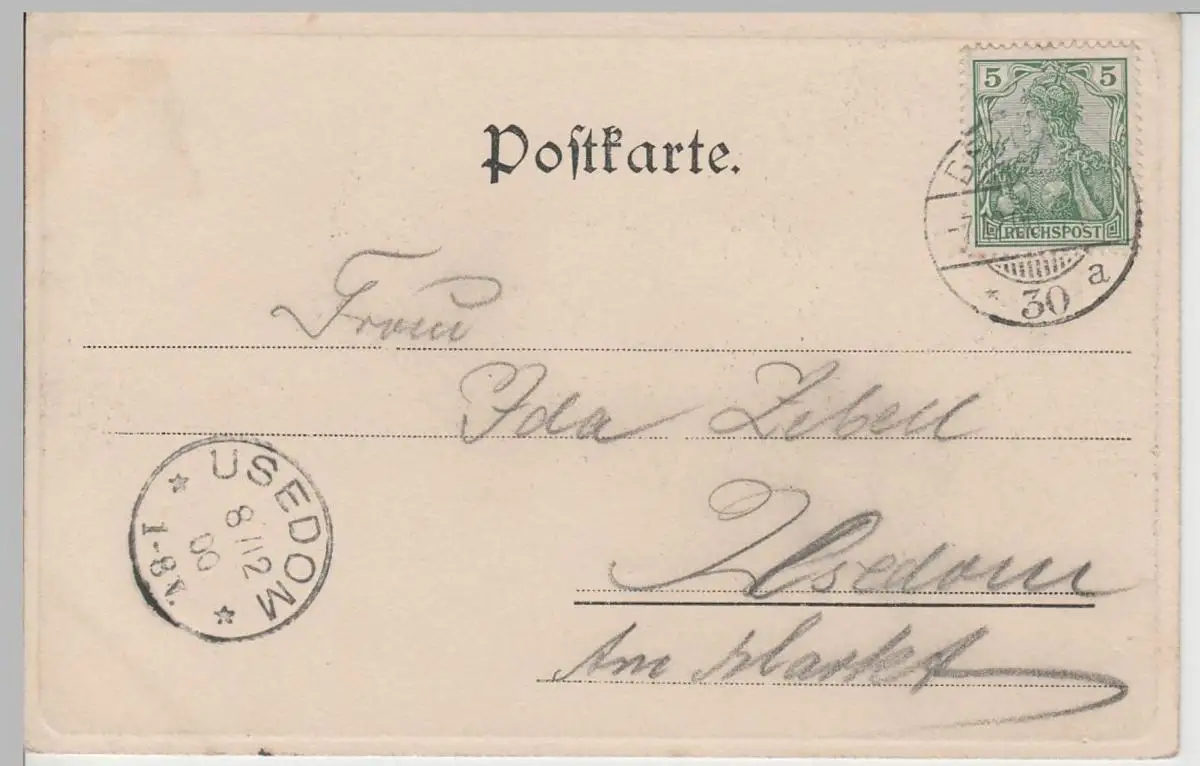 5 5
REICHSPOST
Poſtkarte.
* 30 a
Frau
Ida Zibell
Usedom
Am Markt
USEDOM
8/12
00
1-8 N.